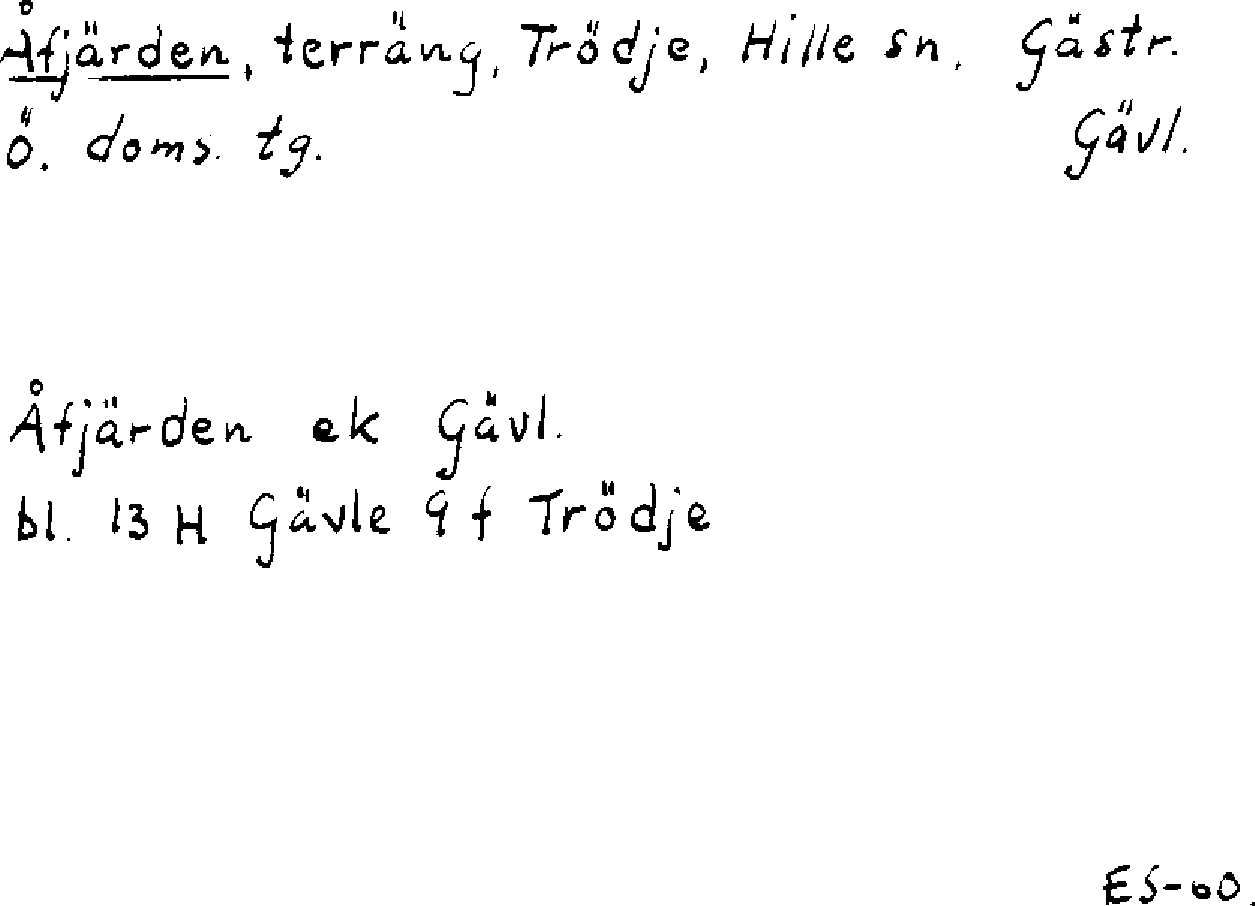 Åfjärden, terräng, Trödje, Hille sn. Gästr.
Ö. doms. tg. Gävl.
Åfjärden ek Gävl.
bl. 13 H Gävle 9 f Trödje
ES-60.